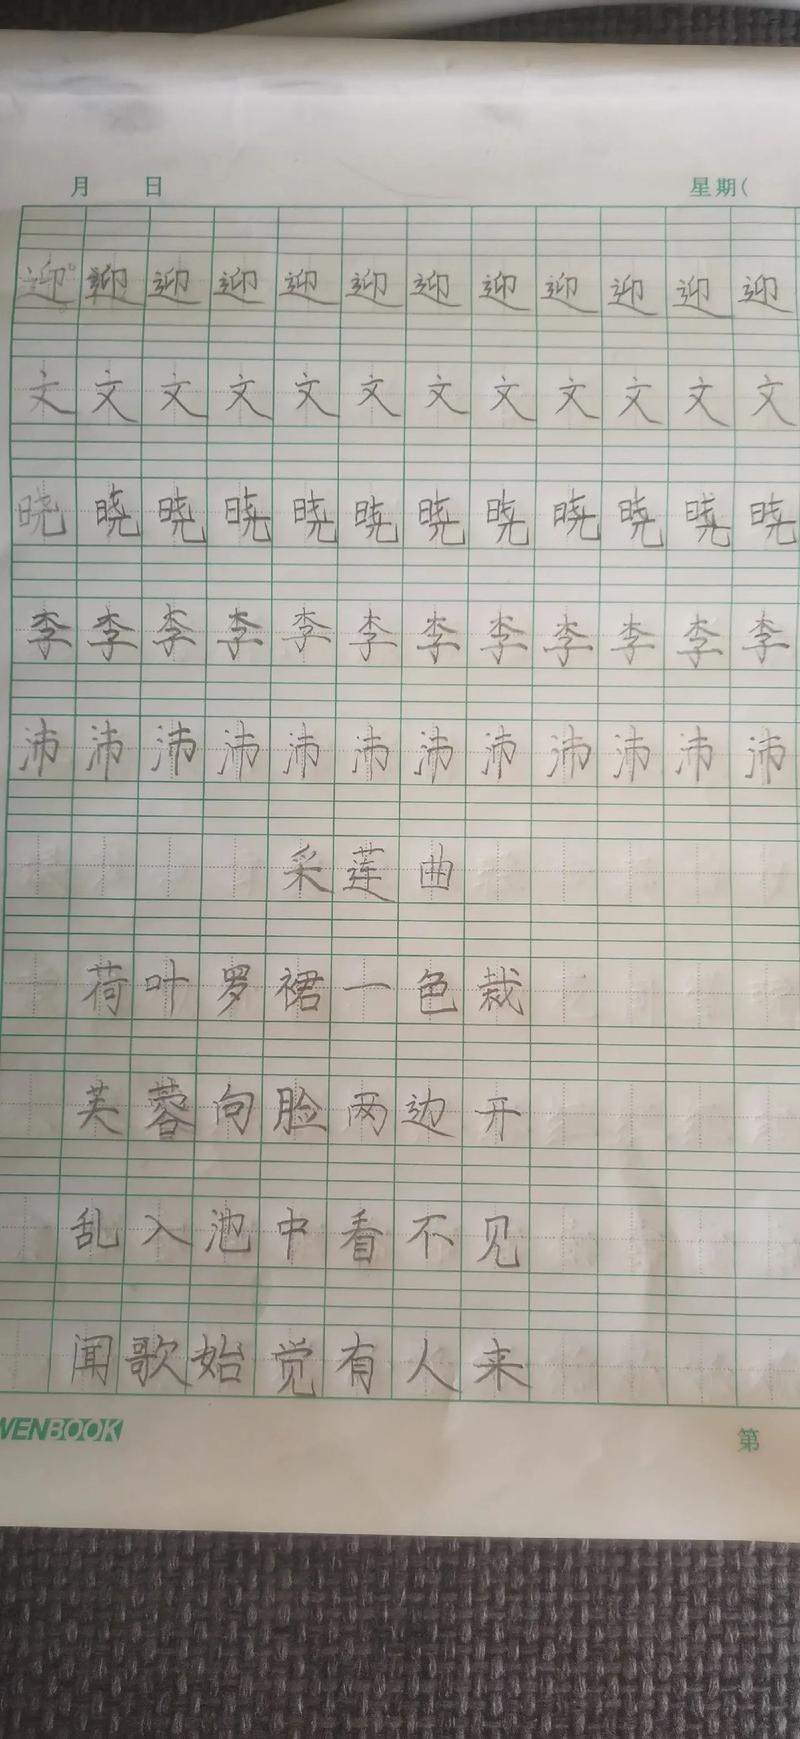 月 日 星期(
迎 迎 迎 迎 迎 迎 迎 迎 迎 迎 迎 迎
文 文 文 文 文 文 文 文 文 文 文 文
晓 晓 晓 晓 晓 晓 晓 晓 晓 晓 晓 晓
李 李 李 李 李 李 李 李 李 李 李 李
沛 沛 沛 沛 沛 沛 沛 沛 沛 沛 沛 沛
采莲曲
荷叶罗裙一色裁
芙蓉向脸两边开
乱入池中看不见
闻歌始觉有人来
WENBOOK 第